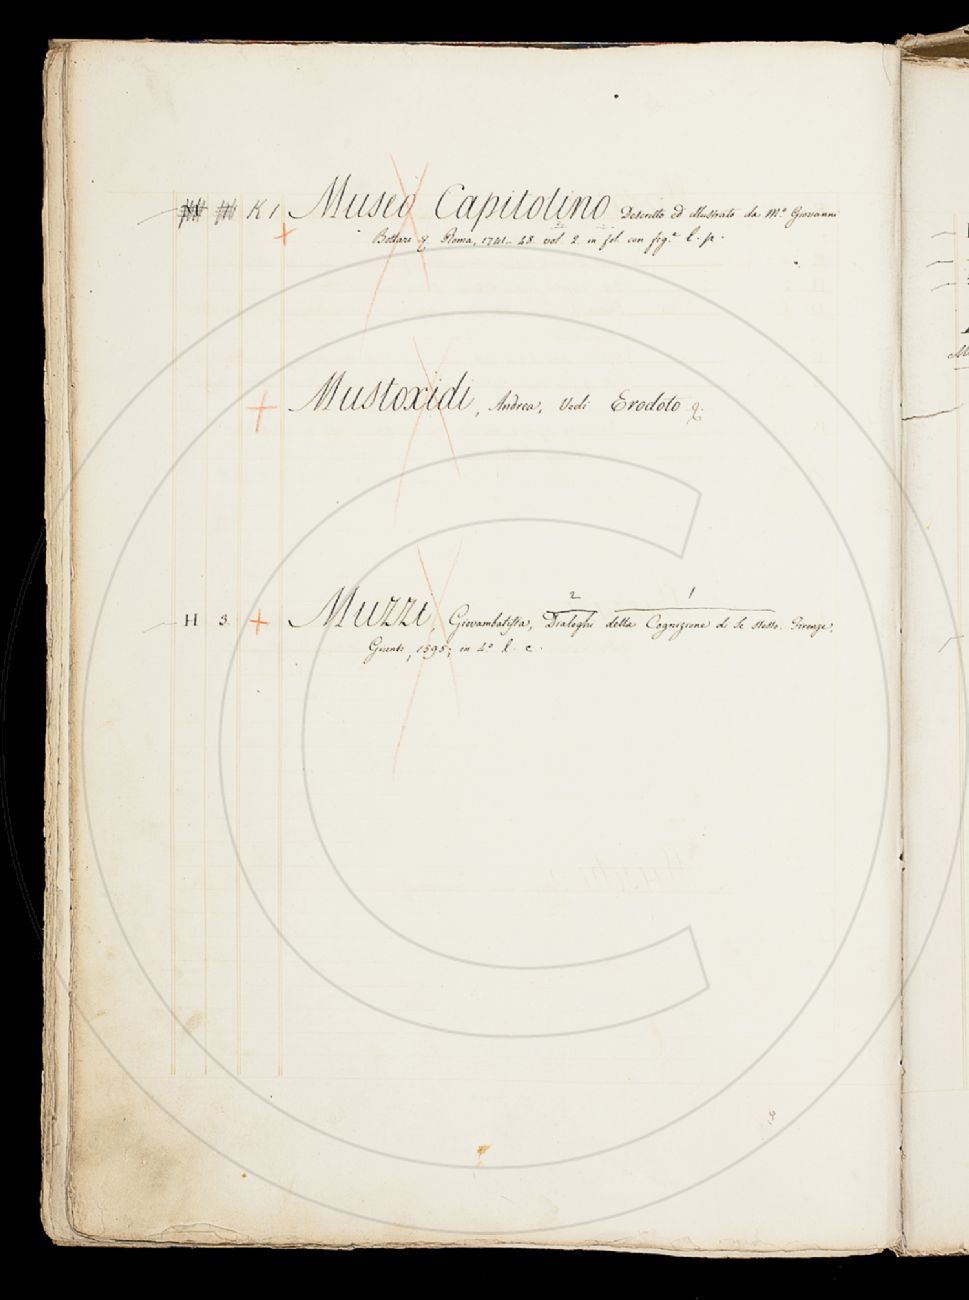 K 1 Museo Capitolino Descritto ed illustrato da M.r Giovanni
Bottari Roma, 1741-48. vol. 2. in fol. con fig.e l. p.
Mustoxidi, Andrea, Vedi Erodoto
2 1
H 3. Muzzi, Giovambatista, Dialoghi della Cognizione di Se stesso. Firenze,
Giunti, 1595; in 4.o l. c.